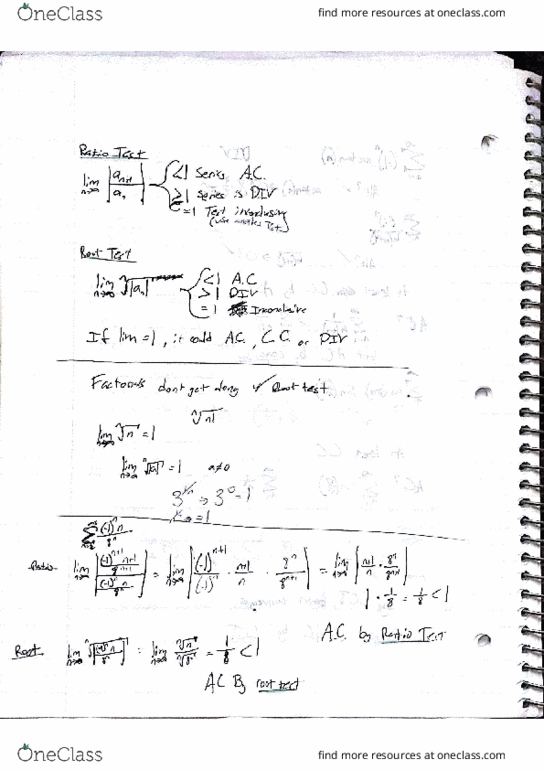 OneClass
find more resources at oneclass.com
Ratio Test
lim n→∞ |aₙ₊₁/aₙ| <1 Series A.C.
>1 Series is DIV
=1 Test inconclusive
Root Test
lim n→∞ ⁿ√|aₙ| <1 A.C
>1 DIV
=1 Inconclusive
If lim=1, it could AC, C.C. or DIV
Factorials dont get along w/ Root test
ⁿ√n!
lim n→∞ ⁿ√n = 1
lim n→∞ ⁿ√|a| = 1 a≠0
3^(1/n) → 3⁰ = 1
∑ (-1)ⁿ n / 8ⁿ
Ratio lim n→∞ |((-1)ⁿ⁺¹ n+1 / 8ⁿ⁺¹) / ((-1)ⁿ n / 8ⁿ)| = lim n→∞ |(-1)ⁿ⁺¹/(-1)ⁿ · n+1/n · 8ⁿ/8ⁿ⁺¹| = lim n→∞ |n+1/n · 8ⁿ/8ⁿ⁺¹|
1 · 1/8 = 1/8 < 1
A.C. by Ratio Test
Root lim n→∞ ⁿ√|(-1)ⁿ n / 8ⁿ| = lim n→∞ ⁿ√n / ⁿ√8ⁿ = 1/8 < 1
AC By root test
OneClass
find more resources at oneclass.com